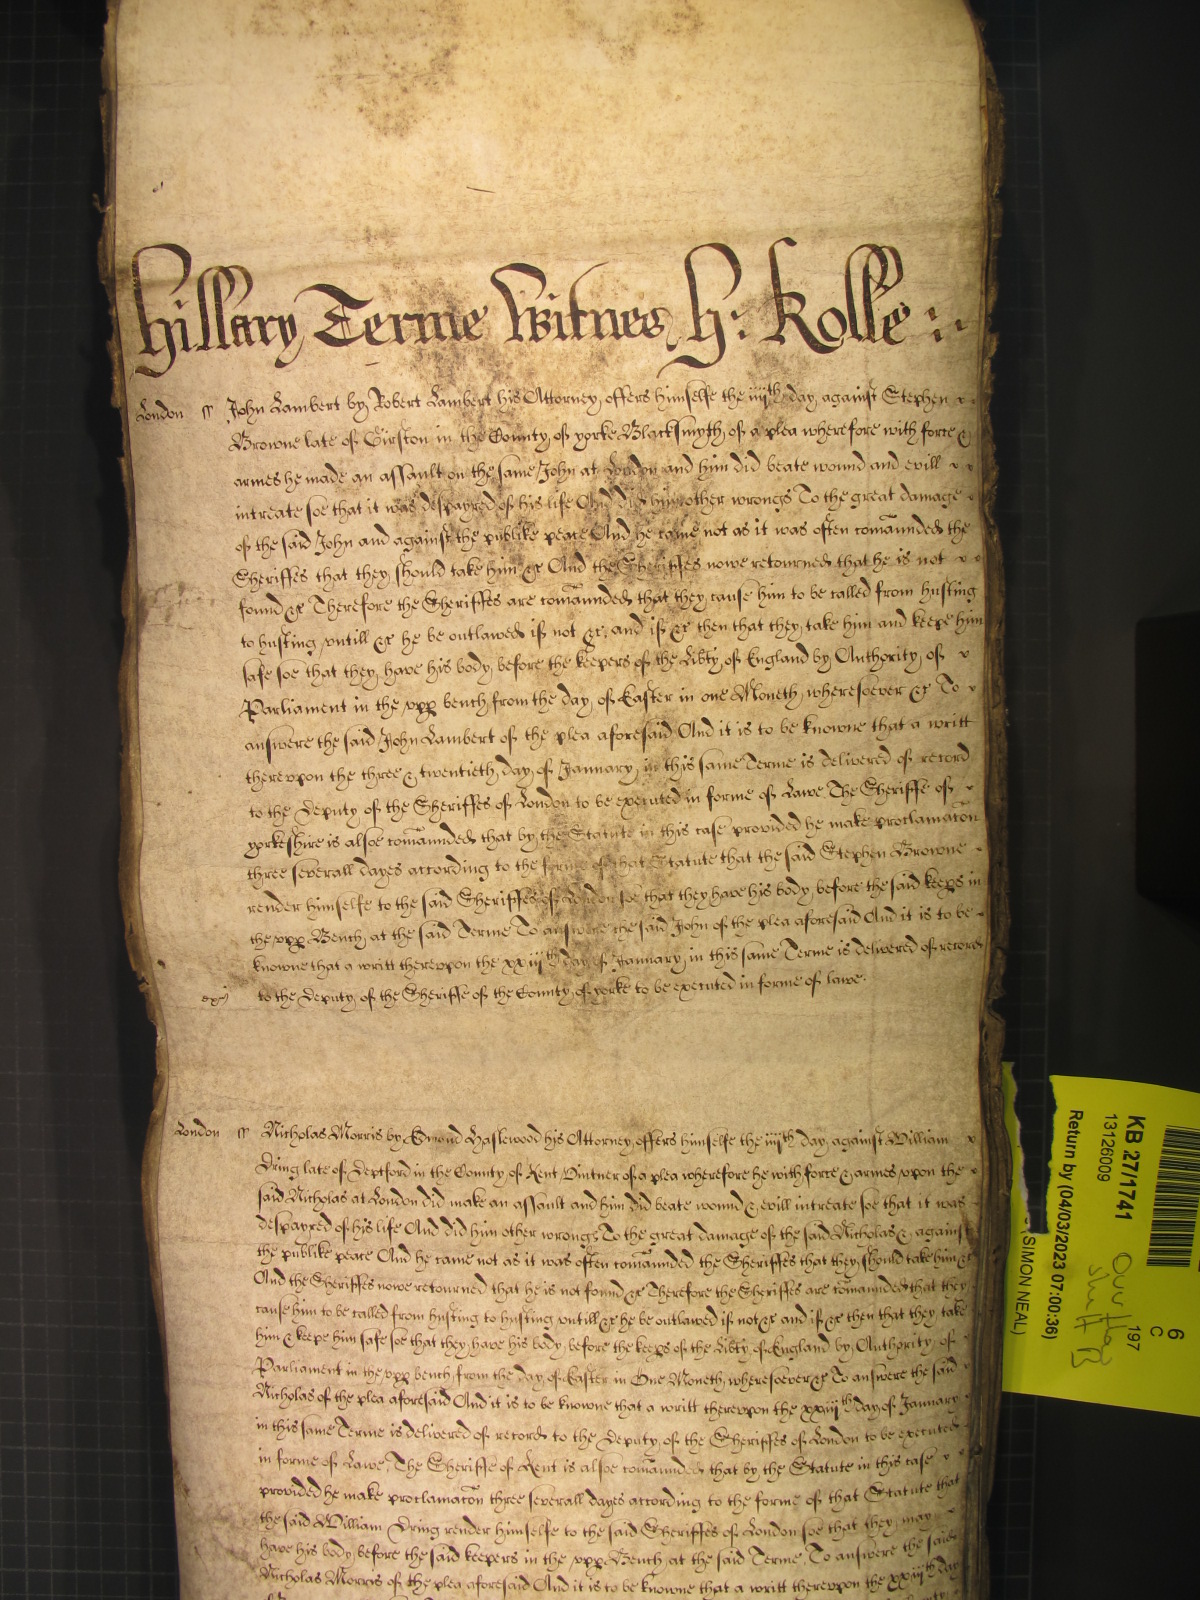 Hillary Terme Witnes H: Rolle
London ss John Lambert by Robert Lambert his Attorney offers himselfe the iiijth day against Stephen
Browne late of Girston in the County of yorke Blacksmyth of a plea wherefore with force &
armes he made an assault on the same John at London and him did beate wound and evill
intreate soe that it was despayred of his life And did him other wrongs To the great damage
of the said John and against the publike peace And he came not as it was often comaunded the
Sheriffes that they should take him &c And the Sheriffes nowe retourned that he is not
found &c Therefore the Sheriffes are comaunded that they cause him to be called from husting
to husting untill &c he be outlawed if not &c and if &c then that they take him and keepe him
safe soe that they have his body before the keepers of the Libty of England by Authority of
Parliament in the upp bench from the day of Easter in one Moneth wheresoever &c To
answere the said John Lambert of the plea aforesaid And it is to be knowne that a writt
thereupon the three & twentieth day of January in this same Terme is delivered of record
to the Deputy of the Sheriffes of London to be executed in forme of Lawe The Sheriffe of
yorkeshire is alsoe comaunded that by the Statute in this case provided he make proclamacon
three severall dayes according to the forme of that Statute that the said Stephen Browne
render himselfe to the said Sheriffes of London soe that they have his body before the said keeps in
the upp Bench at the said Terme To answere the said John of the plea aforesaid And it is to be
knowne that a writt thereupon the xxiijth day of January in this same Terme is delivered of record
exr to the Deputy of the Sheriffe of the County of yorke to be executed in forme of lawe
London ss Nicholas Morris by Edmond Haslewood his Attorney offers himselfe the iiijth day against William
Dring late of Deptford in the County of Kent Vintner of a plea wherefore he with force & armes upon the
said Nicholas at London did make an assault and him did beate wound & evill intreate soe that it was
despayred of his life And did him other wrongs To the great damage of the said Nicholas & against
the publike peace And he came not as it was often comaunded the Sheriffes that they should take him &c
And the Sheriffes nowe retourned that he is not found &c Therefore the Sheriffes are comaunded that they
cause him to be called from husting to husting untill &c he be outlawed if not &c and if &c then that they take
him & keepe him safe soe that they have his body before the keeps of the Libty of England by Authority of
Parliament in the upp bench from the day of Easter in One Moneth wheresoever &c To answere the said
Nicholas of the plea aforesaid And it is to be knowne that a writt thereupon the xxiijth day of January
in this same Terme is delivered of record to the Deputy of the Sheriffes of London to be executed
in forme of Lawe The Sheriffe of Kent is alsoe comaunded that by the Statute in this case
provided he make proclamacon three severall dayes according to the forme of that Statute that
the said William Dring render himselfe to the said Sheriffes of London soe that they may
have his body before the said keepers in the upp Bench at the said Terme To answere the said
Nicholas Morris of the plea aforesaid And it is to be knowne that a writt thereupon the xxiijth day
KB 27/1741
13126009
Return by (04/03/2023 07:00:36)
(SIMON NEAL)
6
C
197